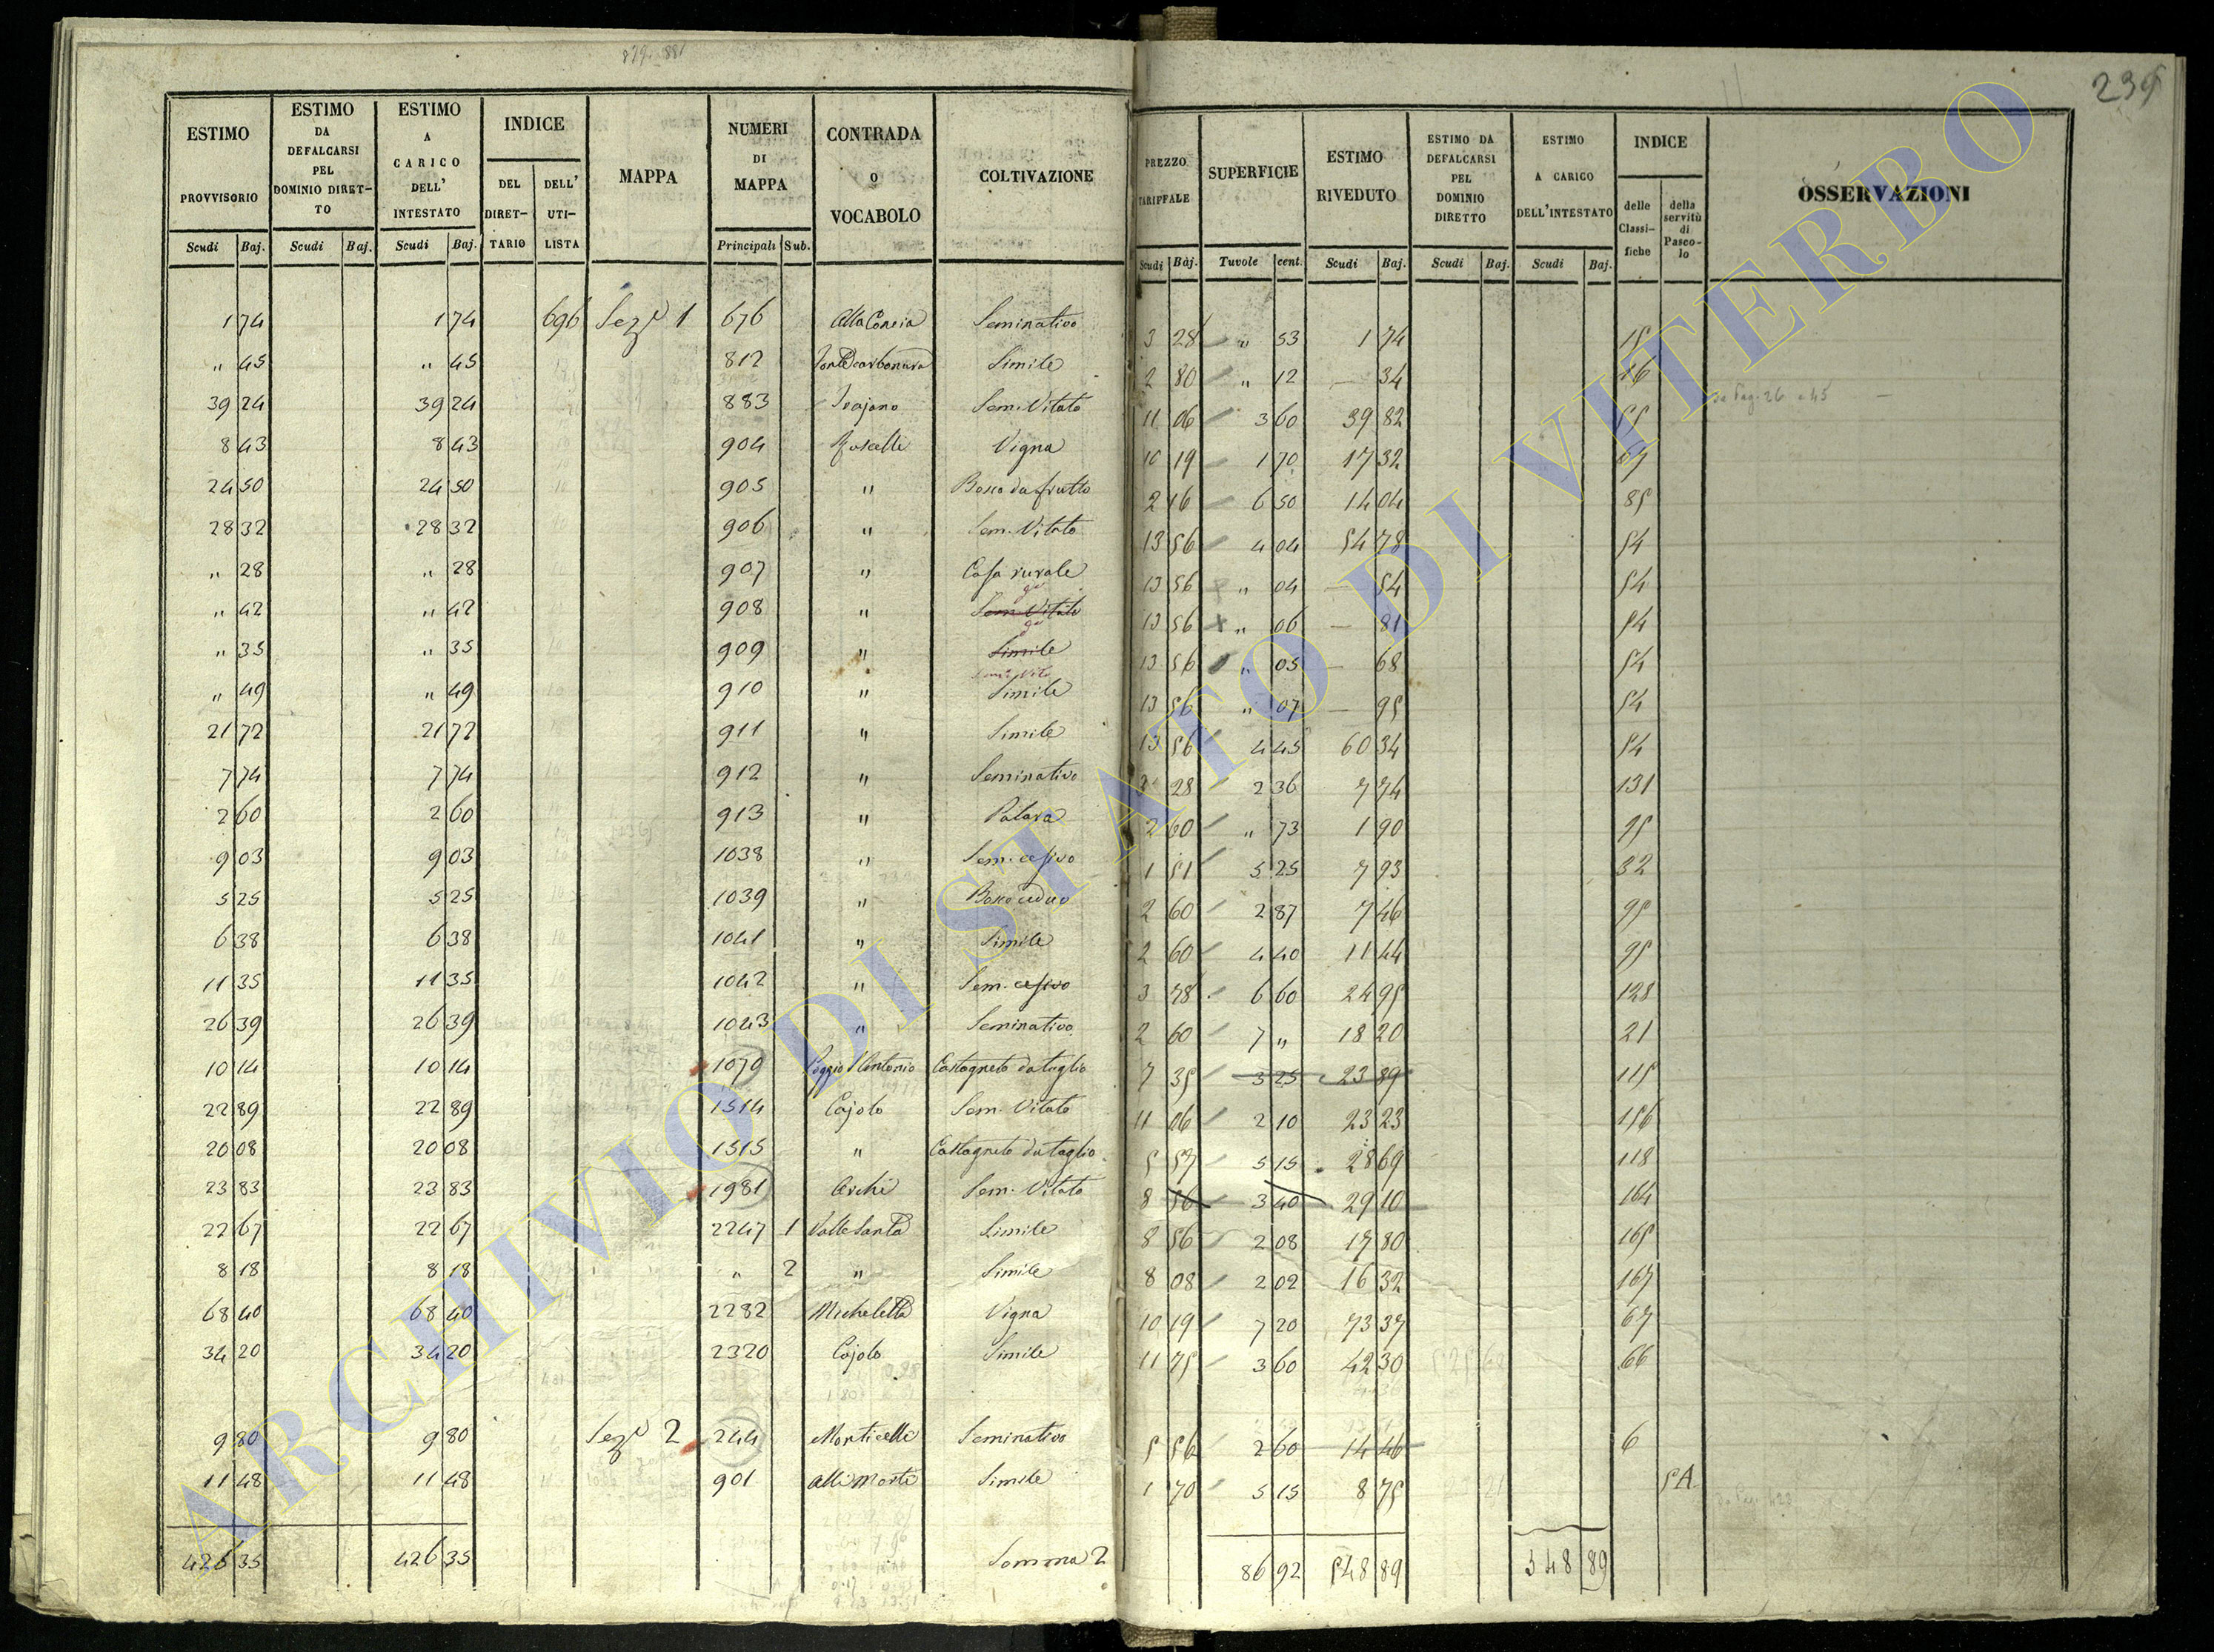 879. 881
239
ESTIMO PROVVISORIO
ESTIMO DA DEFALCARSI PEL DOMINIO DIRET-TO
ESTIMO A CARICO DELL' INTESTATO
INDICE
DEL DIRET-TARIO
DELL' UTI-LISTA
MAPPA
NUMERI DI MAPPA
CONTRADA O VOCABOLO
COLTIVAZIONE
PREZZO TARIFFALE
SUPERFICIE
ESTIMO RIVEDUTO
ESTIMO DA DEFALCARSI PEL DOMINIO DIRETTO
ESTIMO A CARICO DELL'INTESTATO
INDICE
delle Classi-fiche
della servitù di Pasco-lo
OSSERVAZIONI
Scudi Baj. Scudi Baj. Scudi Baj. Principali Sub. Scudi Baj. Tavole cent. Scudi Baj. Scudi Baj. Scudi Baj.
1 74 1 74 696 Sez.e 1 676 Alla Concia Seminativo 3 28 " 53 1 74 15
" 45 " 45 812 Simile 2 80 " 12 — 34 16
39 24 39 24 883 Trajano Sem. Vitato 11 06 3 60 39 82 55 Da Pag. 26 a 45
8 43 8 43 904 Vigna 10 19 1 70 17 32 67
24 50 24 50 905 " Bosco da frutto 2 16 6 50 14 04 85
28 32 28 32 906 " Sem. Vitato 13 56 4 04 54 78 54
" 28 " 28 907 " Casa rurale 13 56 " 04 — 54 54
" 42 " 42 908 " Sem. Vitato 13 56 " 06 — 81 54
" 35 " 35 909 " Simile 13 56 " 05 — 68 54
" 49 " 49 910 " Simile 13 56 " 07 — 95 54
21 72 21 72 911 " Simile 13 56 4 45 60 34 54
7 74 7 74 912 " Seminativo 3 28 2 36 7 74 131
2 60 2 60 913 " 2 60 " 73 1 90 95
9 03 9 03 1038 " Sem. cesivo 1 51 5 25 7 93 32
5 25 5 25 1039 " Bosco ceduo 2 60 2 87 7 46 95
6 38 6 38 1041 " Simile 2 60 4 40 11 44 95
11 35 11 35 1042 " Sem. cesivo 3 78 6 60 24 95 128
26 39 26 39 1043 " Seminativo 2 60 7 " 18 20 21
10 14 10 14 1079 Poggio S. Antonio Castagneto da taglio 7 35 3 25 23 89 115
22 89 22 89 1514 Cajolo Sem. Vitato 11 06 2 10 23 23 156
20 08 20 08 1515 " Castagneto da taglio 5 57 5 15 28 69 118
23 83 23 83 1981 Archi Sem. Vitato 8 56 3 40 29 10 164
22 67 22 67 2247 1 Valle Santa Simile 8 56 2 08 17 80 165
8 18 8 18 " 2 " Simile 8 08 2 02 16 32 167
68 40 68 40 2282 Micheletta Vigna 10 19 7 20 73 37 67
34 20 34 20 2320 Cajolo Simile 11 75 3 60 42 30 66
9 80 9 80 Sez.e 2 244 Monticelli Seminativo 5 56 2 60 14 46 6
11 48 11 48 901 Simile 1 70 5 15 8 75 5A
426 35 426 35 Somma 2 86 92 548 89 548 89
ARCHIVIO DI STATO DI VITERBO